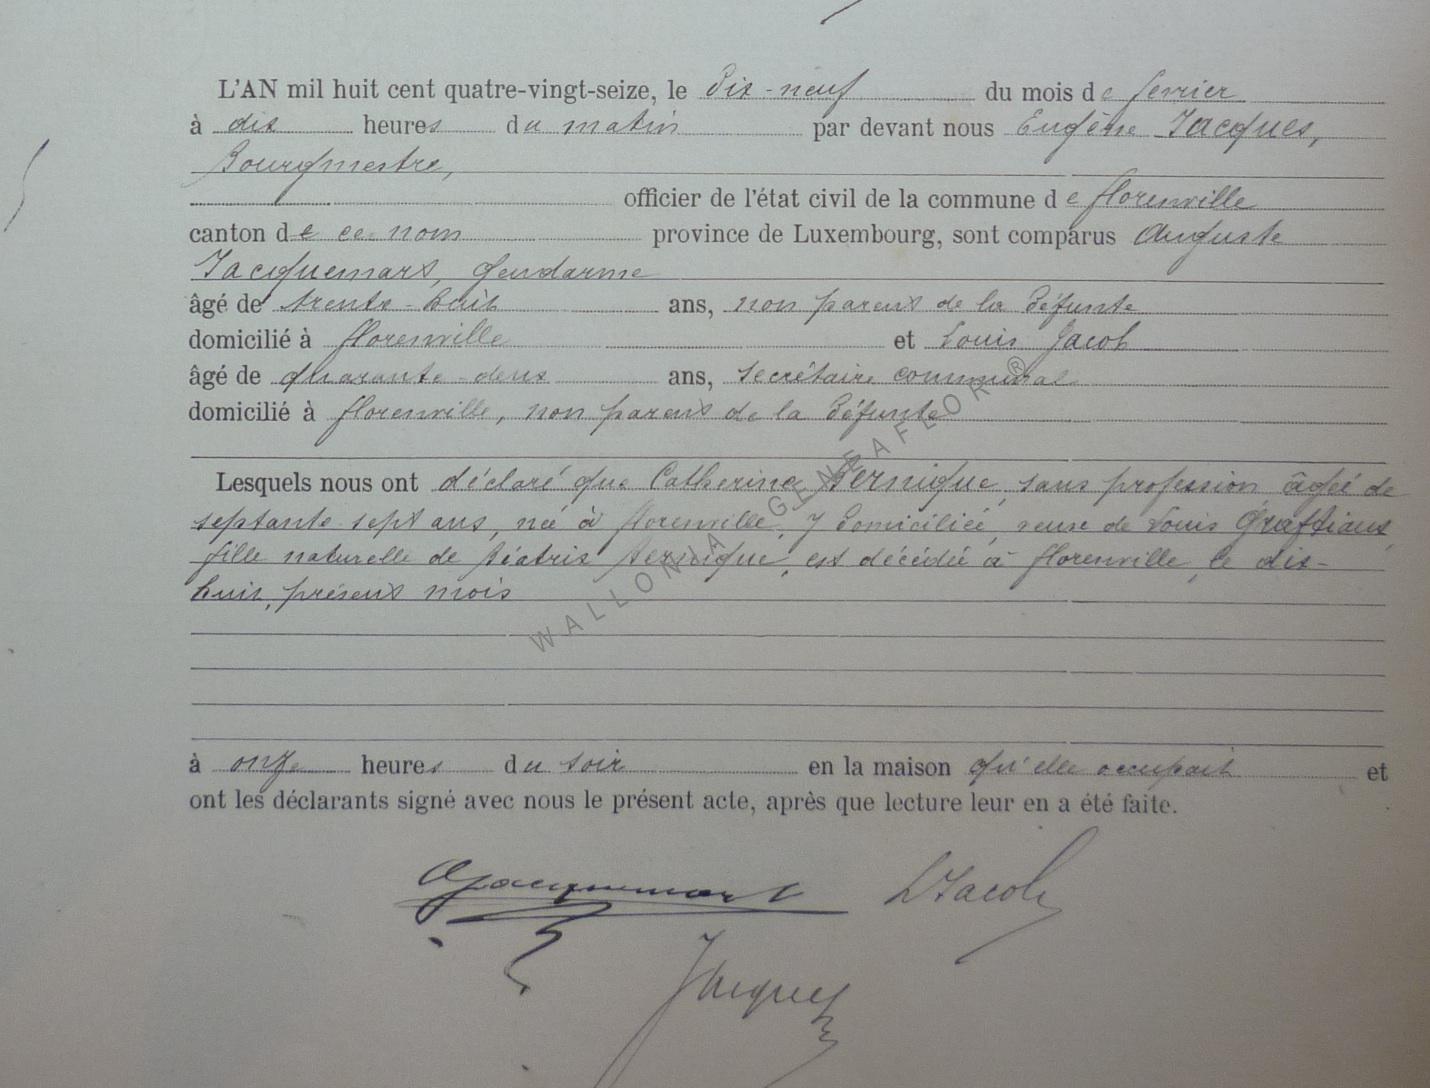 L'AN mil huit cent quatre-vingt-seize, le dix-neuf du mois de février
à dix heures du matin par devant nous Eugène Jacques,
Bourgmestre,
officier de l'état civil de la commune de florenville
canton de ce nom province de Luxembourg, sont comparus Auguste
Jacquemart, gendarme
âgé de trente-huit ans, non parent de la défunte
domicilié à florenville et Louis Jacob
âgé de quarante-deux ans, secrétaire communal
domicilié à florenville, non parent de la défunte
Lesquels nous ont déclaré que Catherine Pernique, sans profession, âgée de
septante sept ans, née à florenville, y domiciliée, veuve de Louis Graftiaux,
fille naturelle de Béatrix Pernique, est décédée à florenville, le dix-
huit, présent mois
à onze heures du soir en la maison qu'elle occupait et
ont les déclarants signé avec nous le présent acte, après que lecture leur en a été faite.
AJacquemart LJacob
Jacques
WALLONIA GENEAFLOR ®